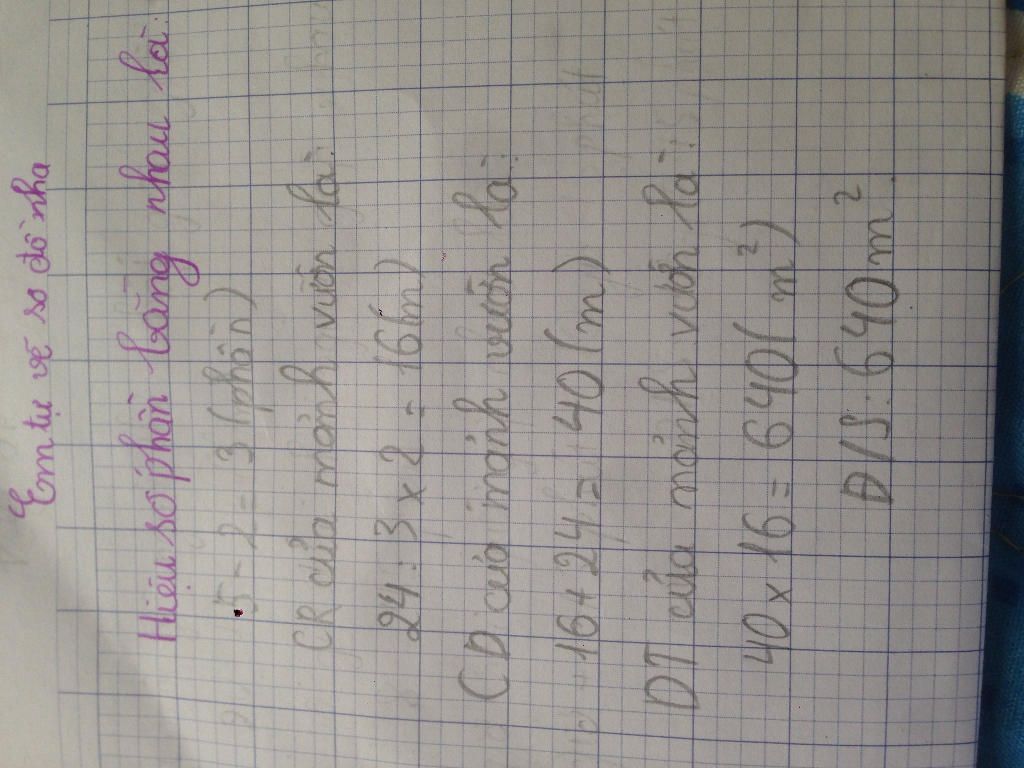 Em tự vẽ sơ đồ nha
Hiệu số phần bằng nhau là:
5 - 2 = 3 (phần)
CR của mảnh vườn là:
24 : 3 x 2 = 16 (m)
CD của mảnh vườn là:
16 + 24 = 40 (m)
DT của mảnh vườn là:
40 x 16 = 640 (m²)
Đ/S: 640 m²